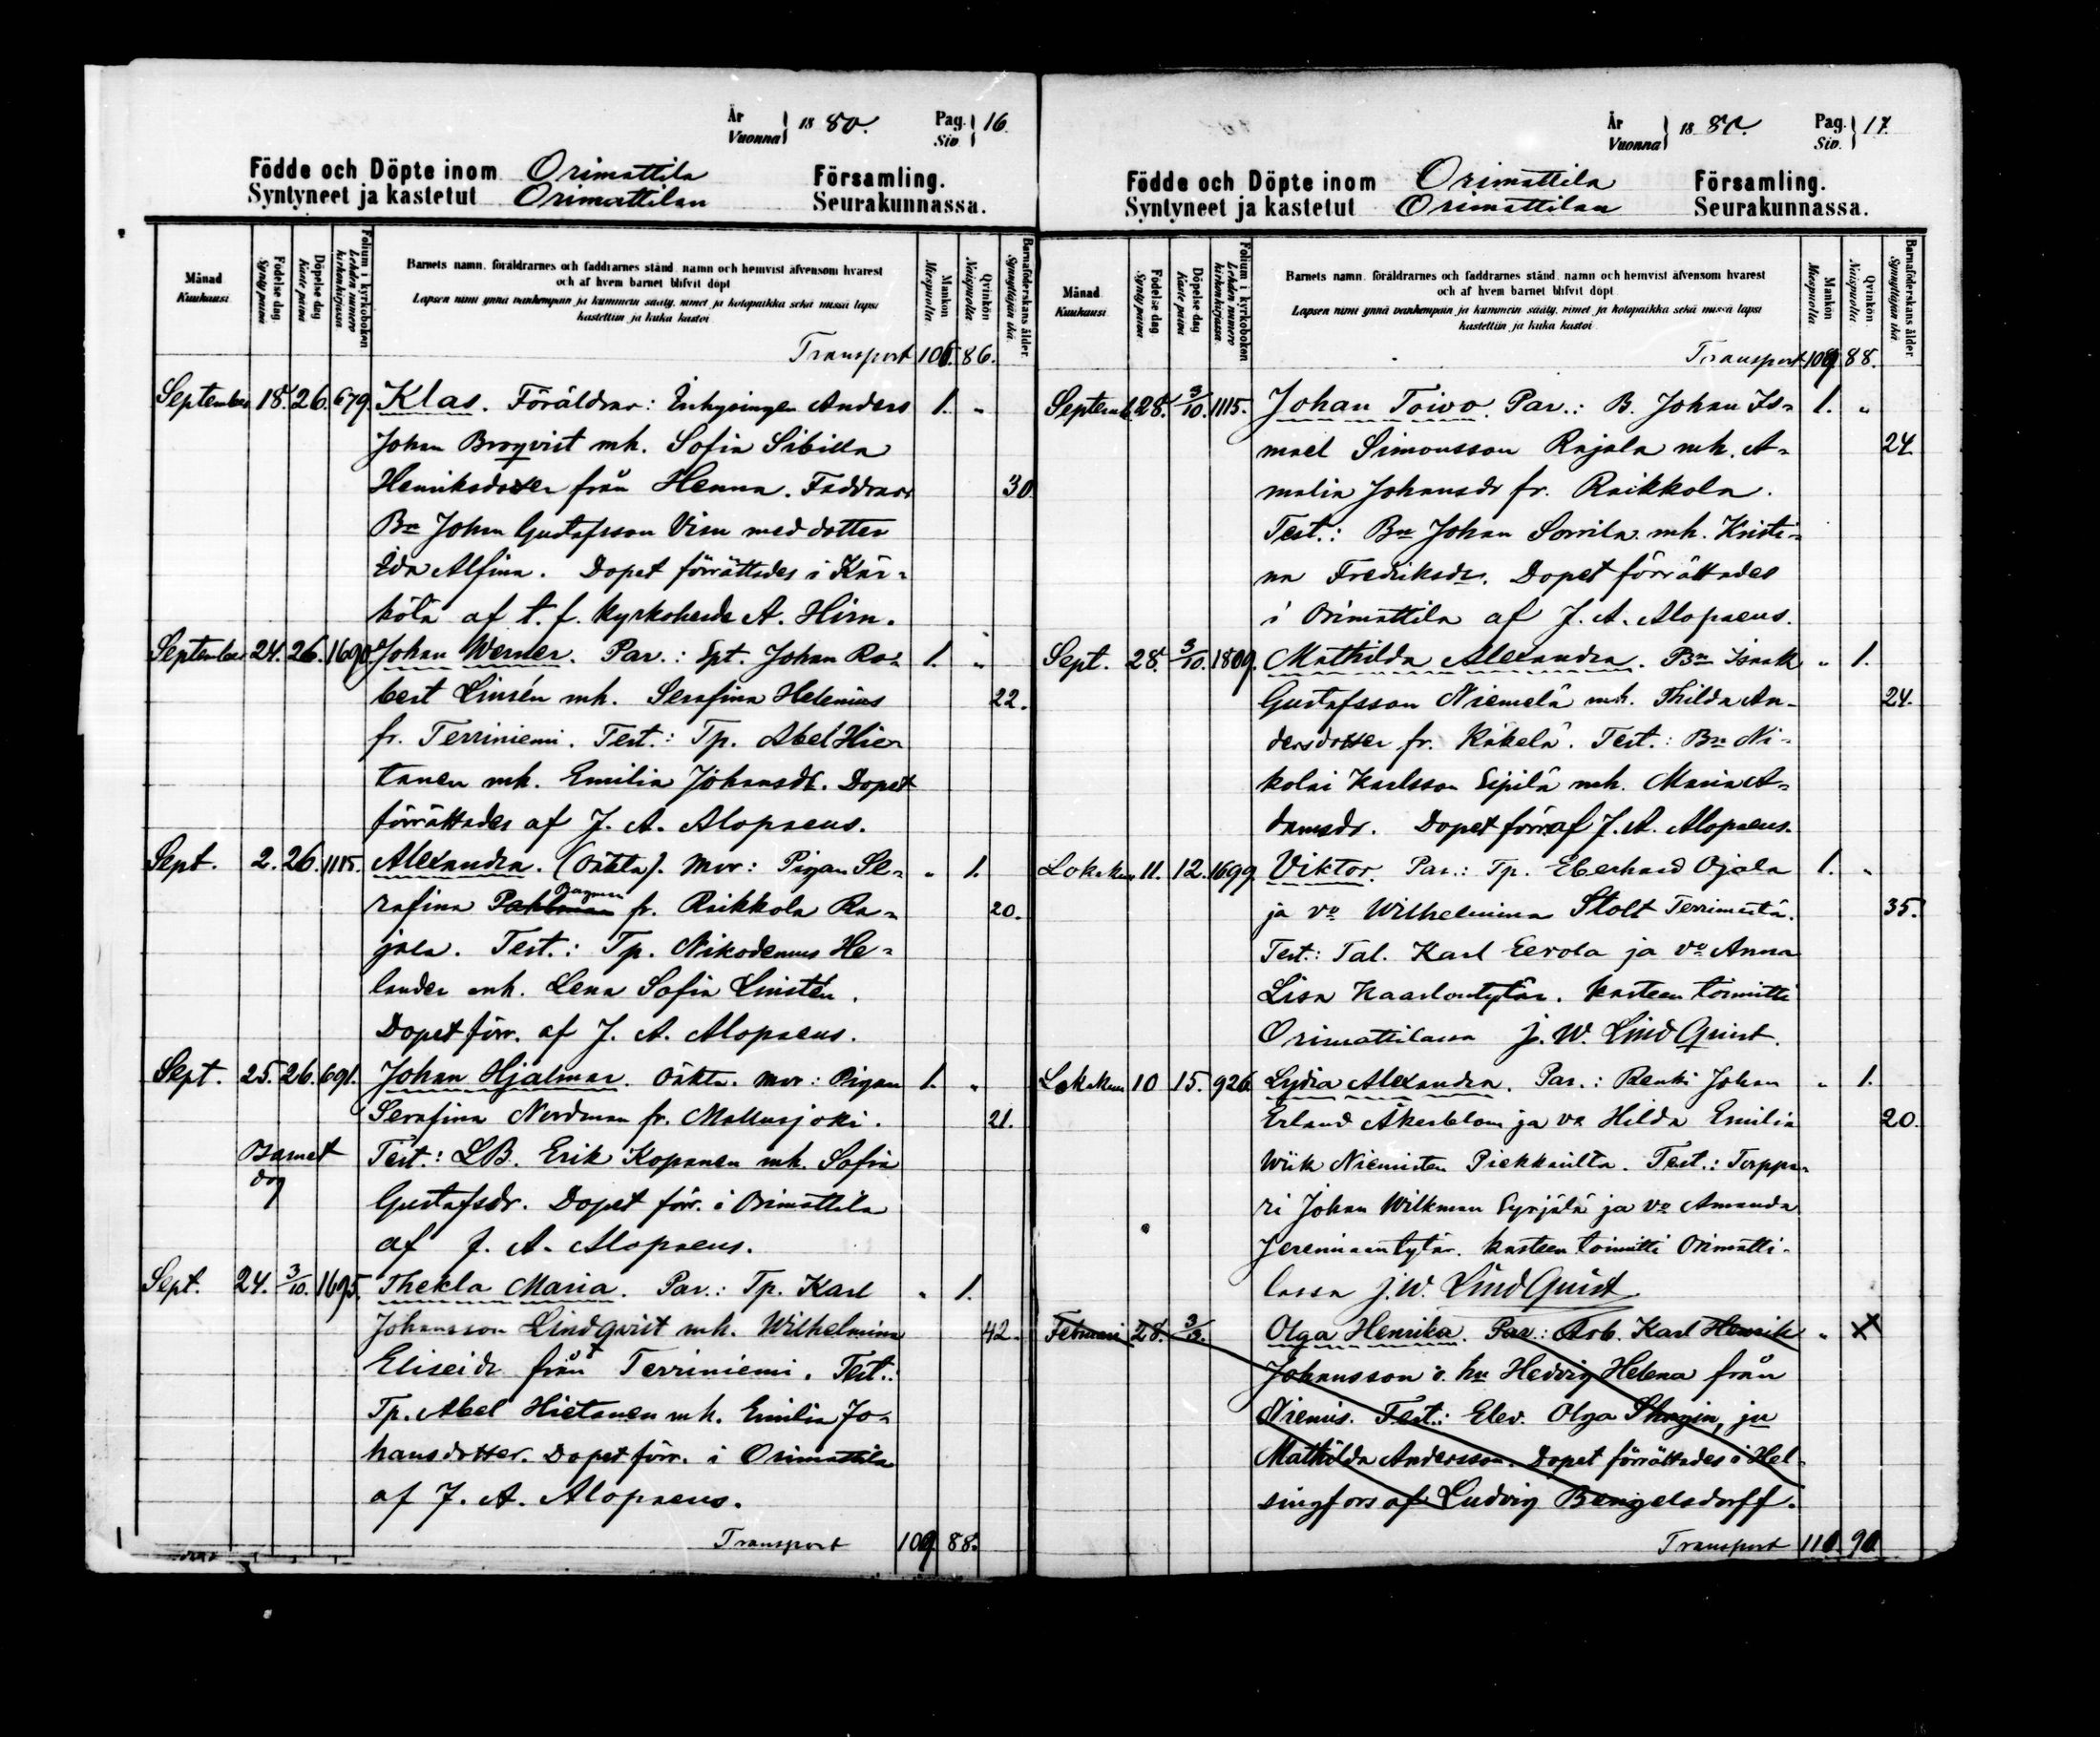 År
Vuonna } 1880. Pag. Siv. } 16.
Födde och Döpte inom Orimattila Församling.
Syntyneet ja kastetut Orimattilan Seurakunnassa.
Månad Kuukausi
Födelse dag. Synty päivä
Döpelse dag Kaste päivä
Folium i kyrkoboken Lehden numero kirkonkirjassa.
Barnets namn, föräldrarnes och faddrarnes stånd, namn och hemvist äfvensom hvarest
och af hvem barnet blifvit döpt
Lapsen nimi ynnä vanhempain ja kummein sääty, nimet ja kotopaikka sekä missä lapsi
kastettiin ja kuka kastoi
Mankön Miespuolia.
Qvinkön Naispuolia
Barnaföderskans ålder. Synnyttäjän ikä.
Transport 106. 86.
September 18. 26. 679. Klas. Föräldrar: Inhysingen Anders 1. "
Johan Broqvist mh. Sofia Sibilla
Henriksdotter från Henna. Faddrar: 30
Bn Johan Gustafsson Visu med dotter
Ida Alfina. Dopet förrättades i Kär=
kölä af t. f. kyrkoherde A. Hirn.
September 24. 26. 1690 Johan Werner. Par.: Spt. Johan Ro= 1. "
bert Linsén mh. Serafina Helenius 22.
fr. Terriniemi. Test.: Tp. Abel Hie=
tanen mh. Emilia Johansdr. Dopet
förrättades af J. A. Alopaeus.
Sept. 2. 26. 1115. Alexandra. (Oäkta). Mor: Pigan Se= " 1.
rafina Pahlman fr. Raikkola Ra= 20.
jala. Test.: Tp. Nikodemus He=
lander mh. Lena Sofia Linstén.
Dopet förr. af J. A. Alopaeus.
Sept. 25. 26. 691. Johan Hjalmar. Oäkta. Mor: Pigan 1. "
Serafina Nordman fr. Mallusjoki. 21.
Barnet Test.: LB. Erik Kopanen mh. Sofia
dog Gustafsdr. Dopet förr. i Orimattila
af J. A. Alopaeus.
Sept. 24. 3/10. 1695. Thekla Maria. Par.: Tp. Karl " 1.
Johansson Lindqvist mh. Wilhelmina 42.
Eliseidr från Terriniemi. Test.:
Tp. Abel Hietanen mh. Emilia Jo=
hansdotter. Dopet förr. i Orimattila
af J. A. Alopaeus.
Transport 109 88.
År
Vuonna } 1880. Pag. Siv. } 17.
Födde och Döpte inom Orimattila Församling.
Syntyneet ja kastetut Orimattilan Seurakunnassa.
Månad Kuukausi
Födelse dag. Synty päivä
Döpelse dag Kaste päivä
Folium i kyrkoboken Lehden numero kirkonkirjassa.
Barnets namn, föräldrarnes och faddrarnes stånd, namn och hemvist äfvensom hvarest
och af hvem barnet blifvit döpt
Lapsen nimi ynnä vanhempain ja kummein sääty, nimet ja kotopaikka sekä missä lapsi
kastettiin ja kuka kastoi.
Mankön Miespuolia
Qvinkön Naispuolia
Barnaföderskans ålder Synnyttäjän ikä.
Transport 109 88.
Septemb. 28. 3/10. 1115. Johan Toivo. Par.: B. Johan Is= 1. "
mael Simonsson Rajala mh. A= 24.
malia Johansdr fr. Raikkola.
Test.: Bn Johan Sorrila mh. Kristi=
na Fredriksdr. Dopet förrättades
i Orimattila af J. A. Alopaeus.
Sept. 28. 3/10. 1809. Mathilda Alexandra. Bn Isaak " 1.
Gustafsson Niemelä mh. Thilda An= 24.
dersdotter fr. Käkelä. Test.: Bn Ni=
kolai Karlsson Sipilä mh. Maria A=
damsdr. Dopet förr. af J. A. Alopaeus.
Lokakuu 11. 12. 1699. Viktor. Par.: Tp. Eberhard Ojala 1. "
ja vo Wilhelmina Stolt 35.
Test.: Tal. Karl Eerola ja vo Anna
Lisa Kaarlontytär. Kasteen toimitti
Orimattilassa J. W. LindQuist.
Lokakuu 10 15. 926 Lydia Alexandra. Par.: Renki Johan " 1.
Erland Åkerblom ja vo Hilda Emilia 20.
Wiik Niemisten Piekkaulta. Test.: Torppa=
ri Johan Wilkman Syrjälä ja vo Amanda
Jeremiaantytär. Kasteen toimitti Orimatti=
lassa J. W. LindQuist.
Februari 28. 3/3. Olga Henrika. Par.: Arb. Karl Henrik "
Johansson o. hu Hedvig Helena från
Niemis. Test.: Elev. Olga ju
Mathilda Andersson. Dopet förrättades i Hel=
singfors af Ludvig Bengelsdorff.
Transport 110. 90